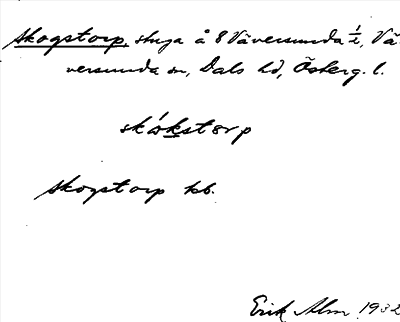 Skogstorp, stuga å 8 Väversunda ½, Vä-
versunda sn, Dals hd, Österg. l.
skókstorp
Skogstorp kb.
Erik Alm 1932